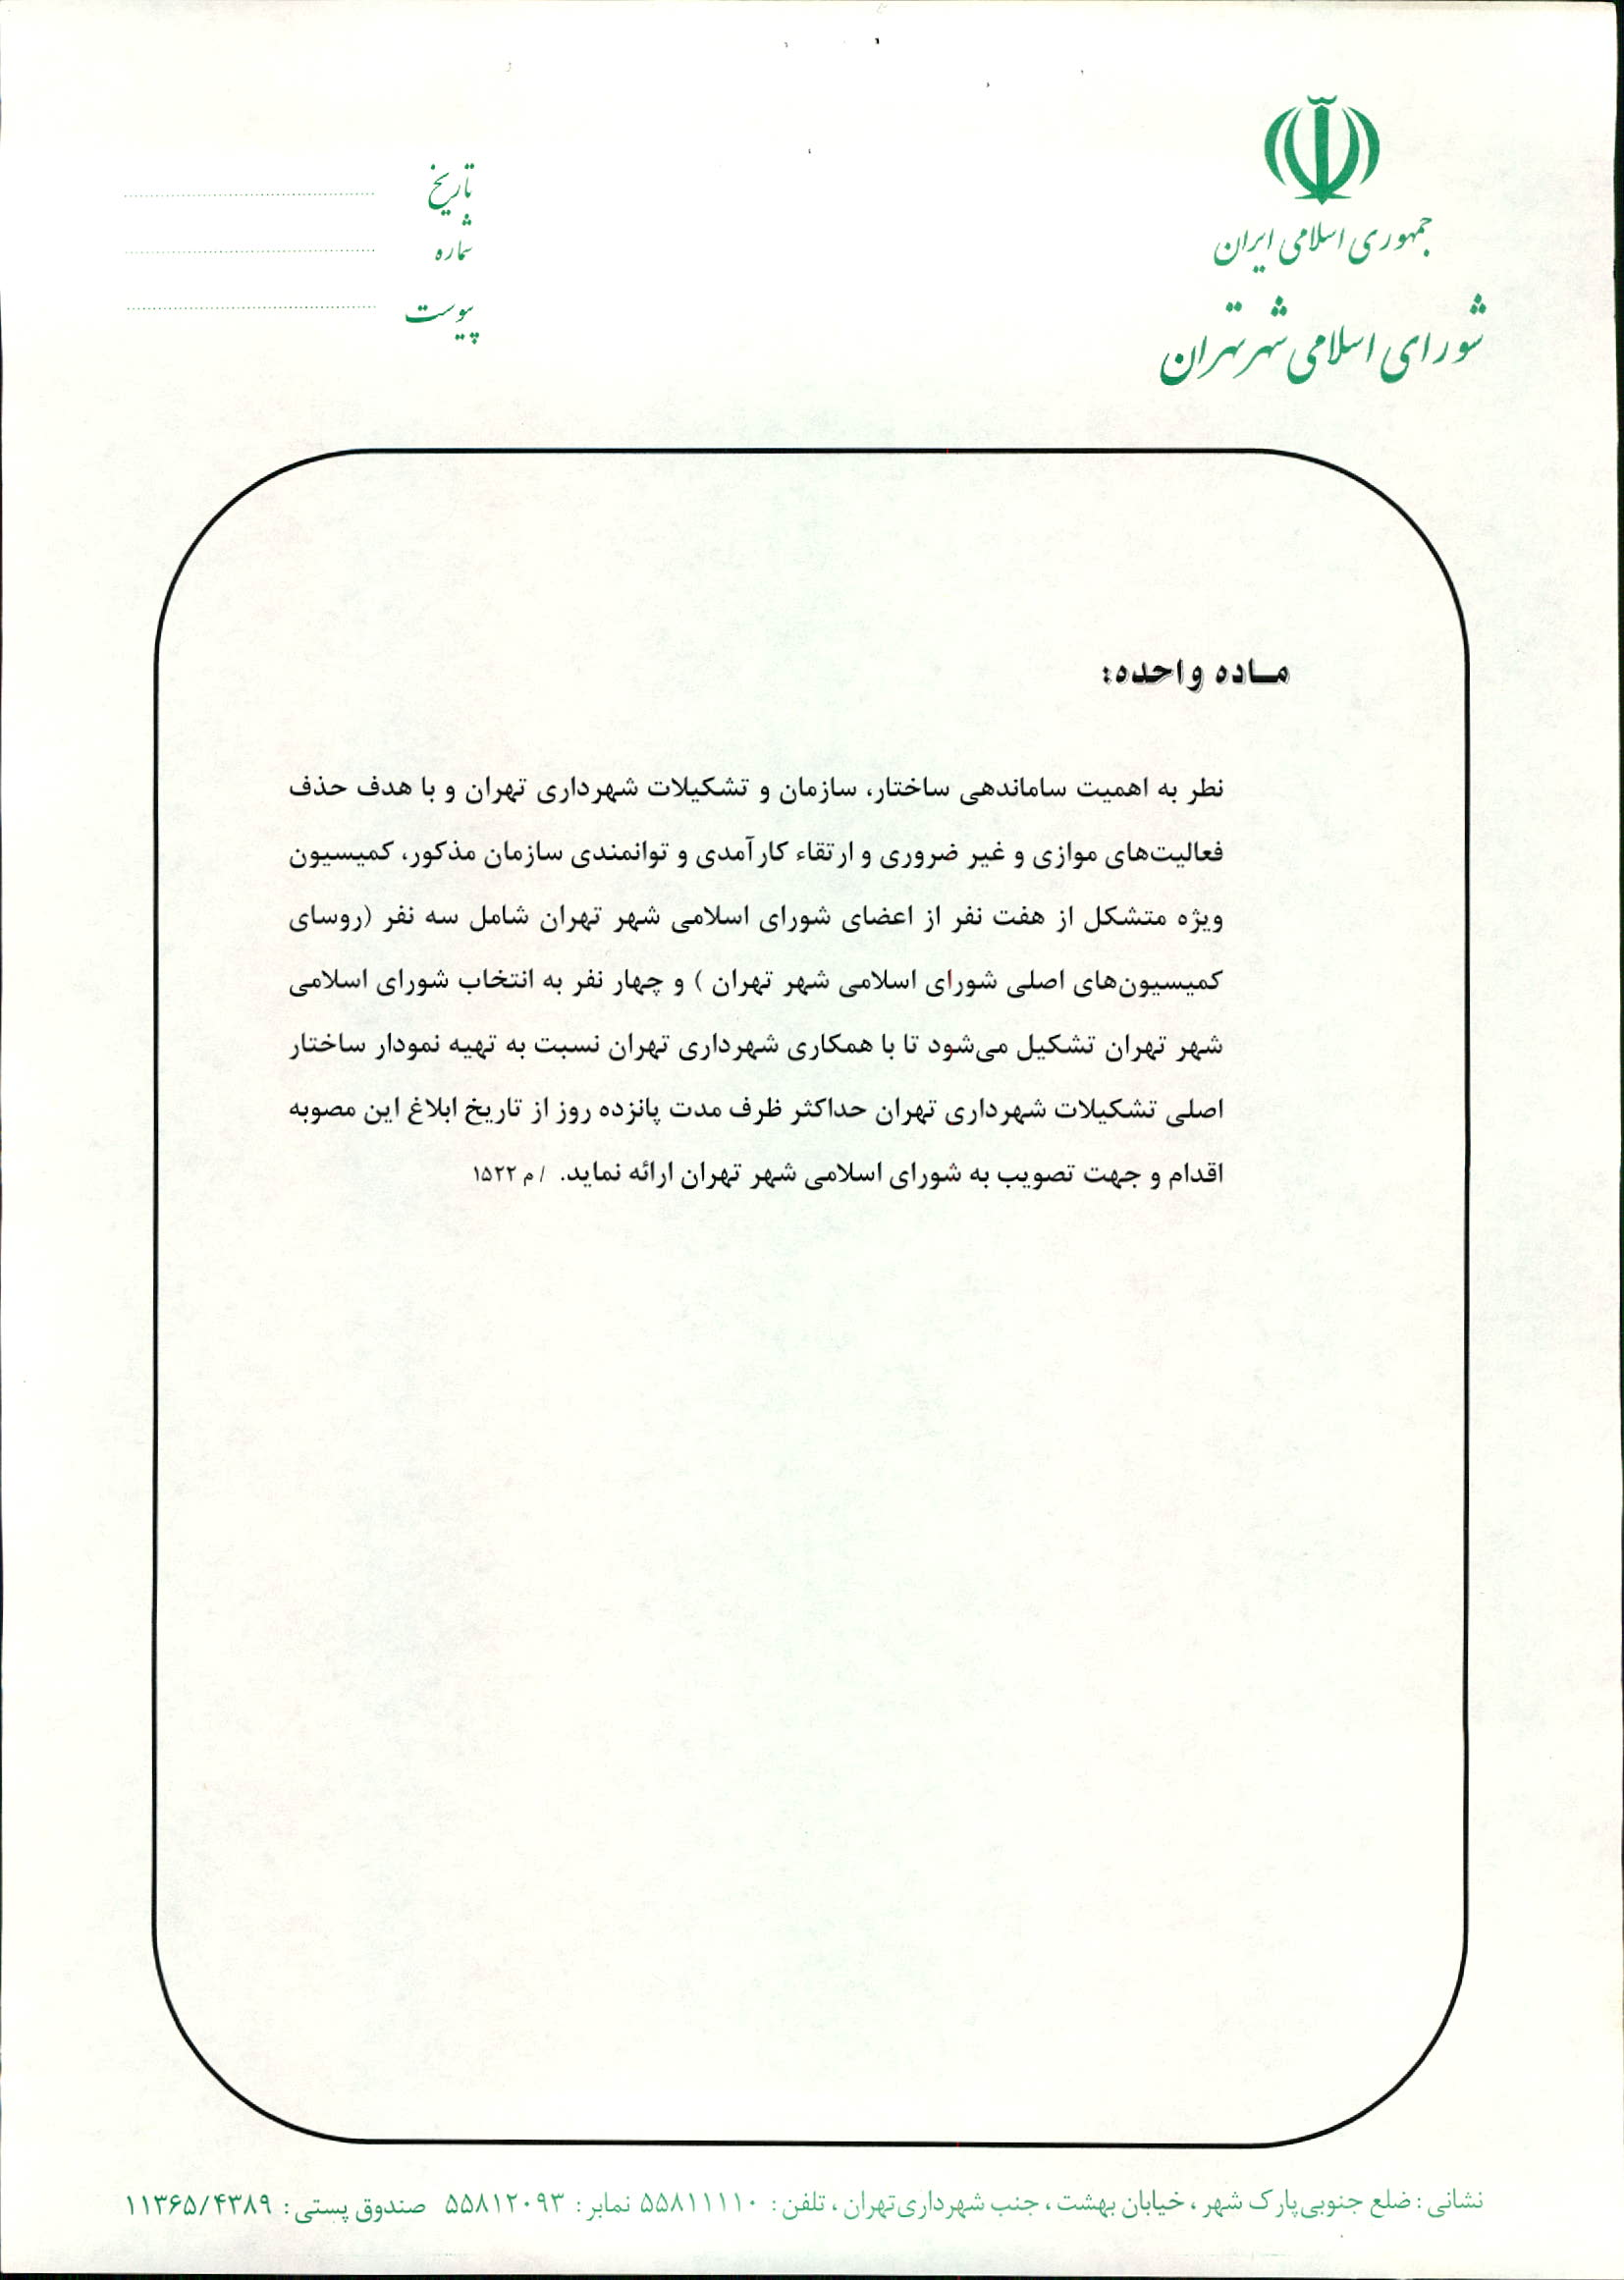 جمهوری اسلامی ایران
شورای اسلامی شهر تهران
تاریخ
شماره
پیوست
مـاده واحده:
نظر به اهمیت ساماندهی ساختار، سازمان و تشکیلات شهرداری تهران و با هدف حذف
فعالیت‌های موازی و غیر ضروری و ارتقاء کارآمدی و توانمندی سازمان مذکور، کمیسیون
ویژه متشکل از هفت نفر از اعضای شورای اسلامی شهر تهران شامل سه نفر (روسای
کمیسیون‌های اصلی شورای اسلامی شهر تهران ) و چهار نفر به انتخاب شورای اسلامی
شهر تهران تشکیل می‌شود تا با همکاری شهرداری تهران نسبت به تهیه نمودار ساختار
اصلی تشکیلات شهرداری تهران حداکثر ظرف مدت پانزده روز از تاریخ ابلاغ این مصوبه
اقدام و جهت تصویب به شورای اسلامی شهر تهران ارائه نماید. / م ۱۵۲۲
نشانی : ضلع جنوبی پارک شهر ، خیابان بهشت ، جنب شهرداری تهران ، تلفن : ۵۵۸۱۱۱۱۰ نمابر : ۵۵۸۱۲۰۹۳ صندوق پستی : ۱۱۳۶۵/۴۳۸۹